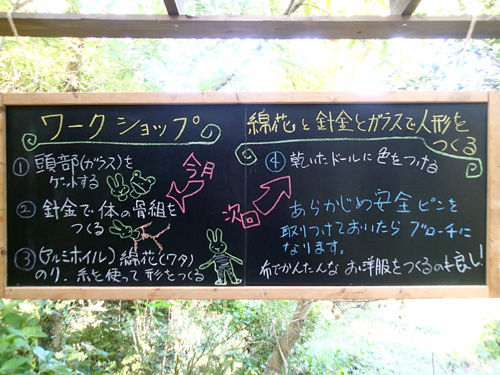 ワークショップ
綿花と針金とガラスで人形を
つくる
① 頭部(ガラス)を
ゲットする
② 針金で体の骨組を
つくる
③ (アルミホイル) 綿花(ワタ)
のり、糸を使って形をつくる
今月
次回
④ 乾いたドールに色をつける
あらかじめ安全ピンを
取りつけておいたらブローチに
なります。
布でかんたんなお洋服をつくるのも良し!